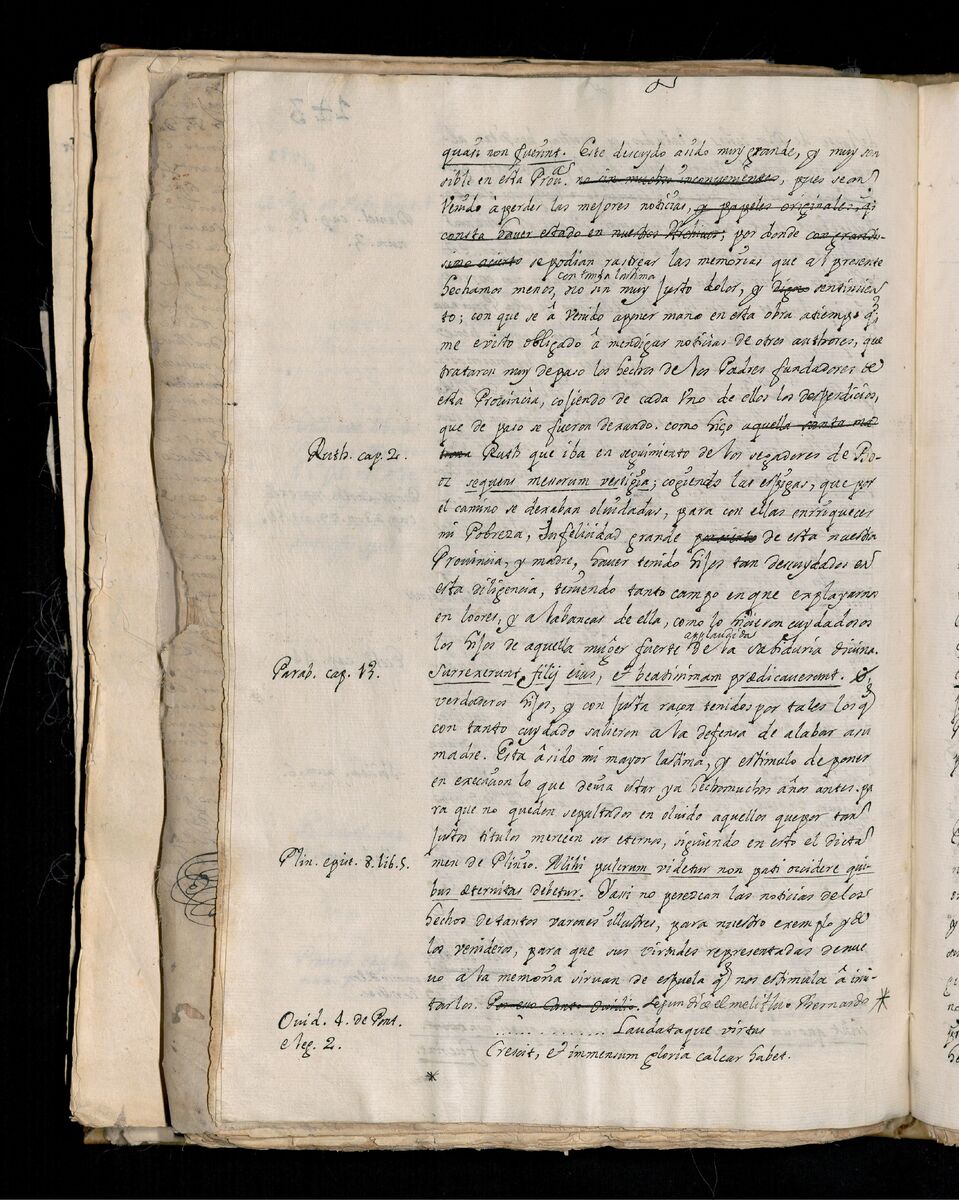 quasi non fuerint. Este descuydo a sido muy grande, y muy sen
sible en esta Prov.ª no sin mucho inconveniente, pues se an
venido à perder las mejores noticias, y papeles originales, q̃
consta haver estado en nuestros Archivos, por donde con grandis-
simo acierto se podian rastrear las memorias que al presente
con tanta lastima
hechamos menos, no sin muy justo dolor, y digno sentimien
to; con que se â venido a poner mano en esta obra a tiempo q̃
me e visto obligado â mendigar noticias de otros authores, que
trataron muy de paso los hechos de los Padres fundadores de
esta Provincia, cojiendo de cada uno de ellos los desperdicios,
que de paso se fueron dexando. como hiço aquella santa ma
trona Ruth que iba en seguimiento de los segadores de Bo-
Ruth. cap. 2.
oz sequens messorum vestigia; cogiendo las espigas, que por
el camino se dexaban olvidadas, para con ellas enrriquecer
mi Pobreza, Infelicidad grande de esta nuestra
Provincia, y madre, haver tenido hijos tan descuydados en
esta diligencia, teniendo tanto campo en que explayarse
en loores, y alabanças de ella, como lo hicieron cuydadosos
applaudida
los hijos de aquella muger fuerte de la sabiduria divina.
Surrexerunt filij eius, et beatissimam prædicaverunt. O,
Parab. cap. 13.
verdaderos hijos, y con justa raçon tenidos por tales los q̃
con tanto cuydado salieron a la defensa de alabar a su
madre. Esta â sido mi mayor lastima, y estimulo de poner
en execucion lo que devia estar ya hecho muchos años antes. pa
ra que no queden sepultados en olvido aquellos que por tan
justos titulos merecen ser eternos, siguiendo en esto el dicta
men de Plinio. Mihi pulcrum videtur non pati occidere qui-
Plin. epist. 8. lib. 5.
bus æternitas debetur. Y asi no perezcan las noticias de los
hechos de tantos varones illustres, para nuestro exemplo y de
los venideros, para que sus virtudes representadas de nue
vo a la memoria sirvan de espuela q̃ nos estimula â imi-
tarlos. Por eso Canto Ovidio. segun dice el melifluo Bernardo *
.................. Laudataque virtus
Ovid. 4. de Pont.
eleg. 2.
Crescit, et immensum gloria calcar habet.
*